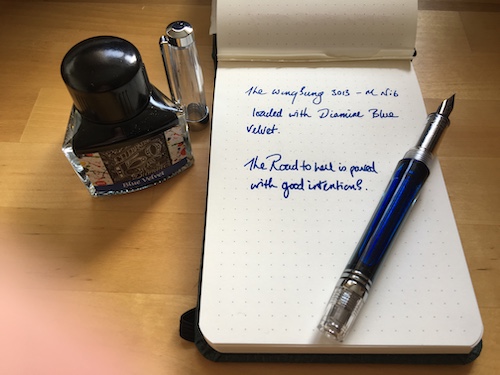 150
Blue Velvet
The WingSung 3013 - M Nib
loaded with Diamine Blue
Velvet.
The Road to hell is paved
with good intentions.